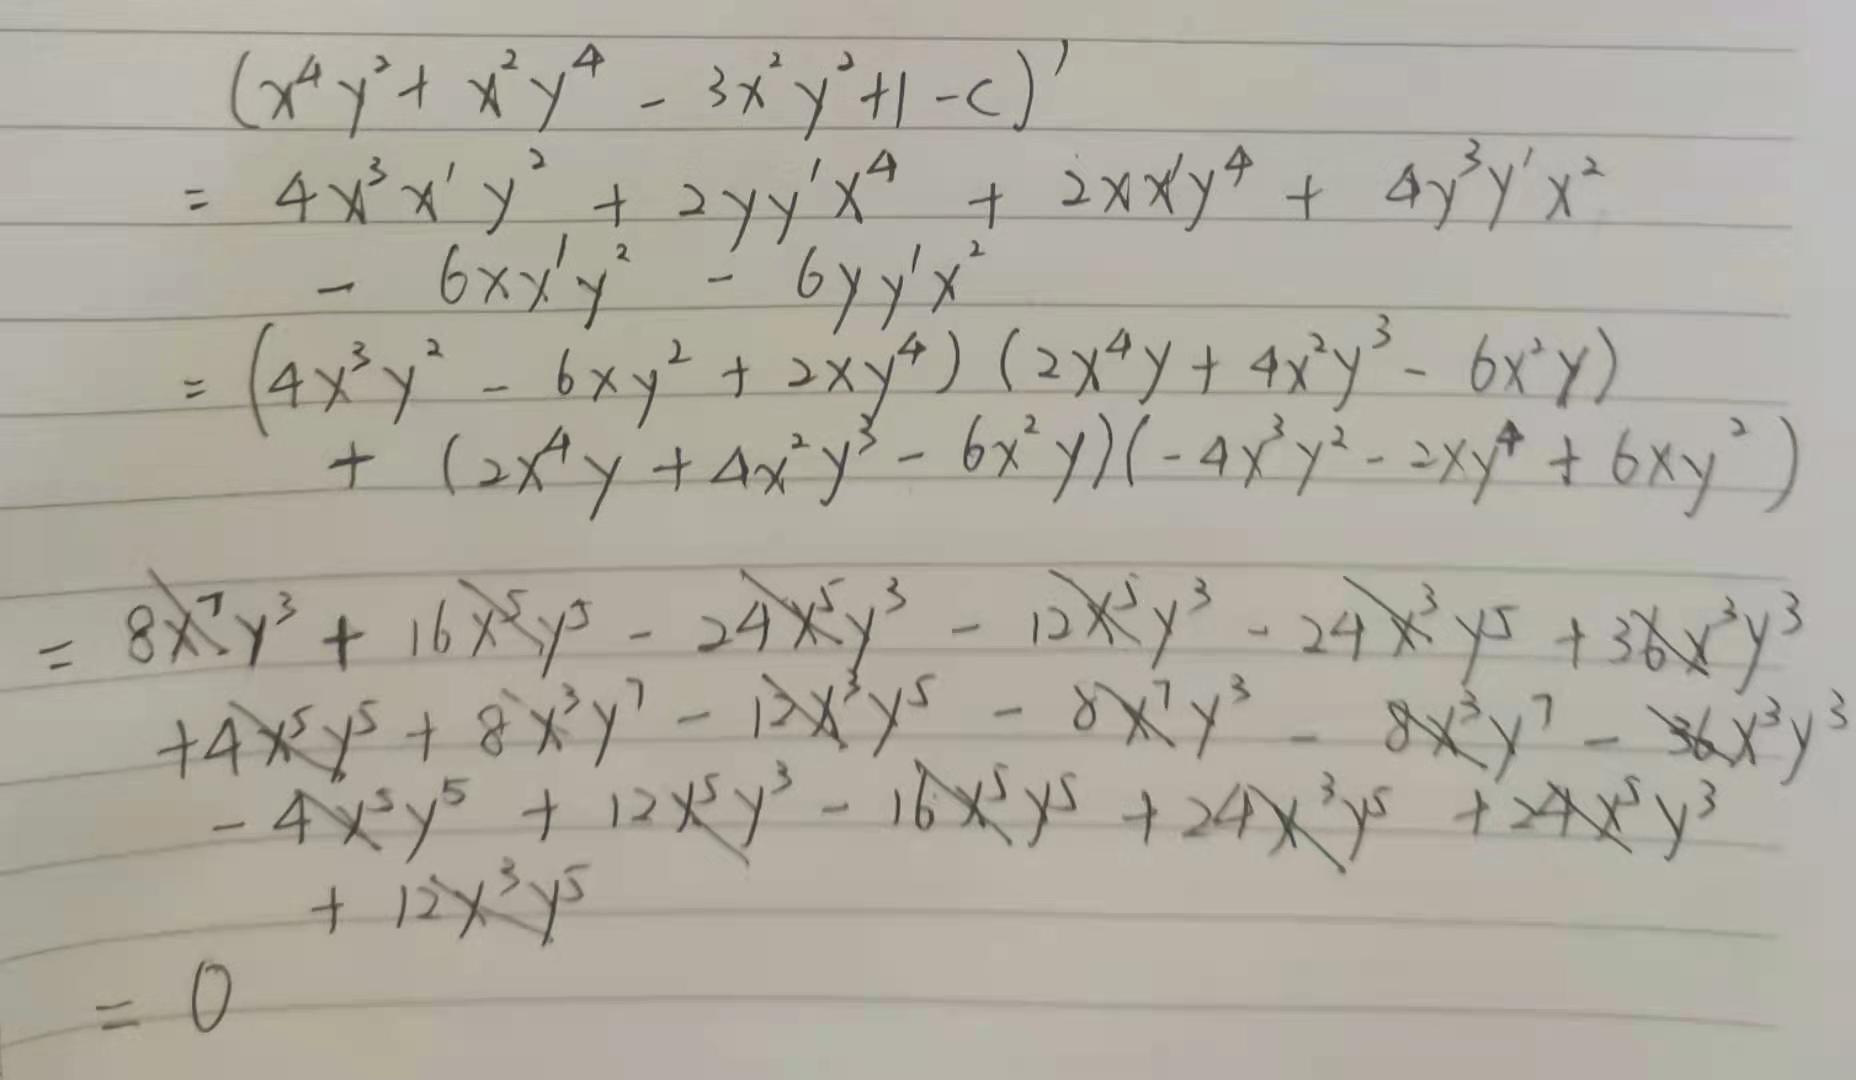 (x⁴y² + x²y⁴ - 3x²y² + 1 - c)'
= 4x³x'y² + 2yy'x⁴ + 2xx'y⁴ + 4y³y'x²
- 6xx'y² - 6yy'x²
= (4x³y² - 6xy² + 2xy⁴) (2x⁴y + 4x²y³ - 6x²y)
+ (2x⁴y + 4x²y³ - 6x²y)(-4x³y² - 2xy⁴ + 6xy²)
= 8x⁷y³ + 16x⁵y⁵ - 24x⁵y³ - 12x⁵y³ - 24x³y⁵ + 36x³y³
+ 4x⁵y⁵ + 8x³y⁷ - 12x³y⁵ - 8x⁷y³ - 8x³y⁷ - 36x³y³
- 4x⁵y⁵ + 12x⁵y³ - 16x⁵y⁵ + 24x³y⁵ + 24x⁵y³
+ 12x³y⁵
= 0